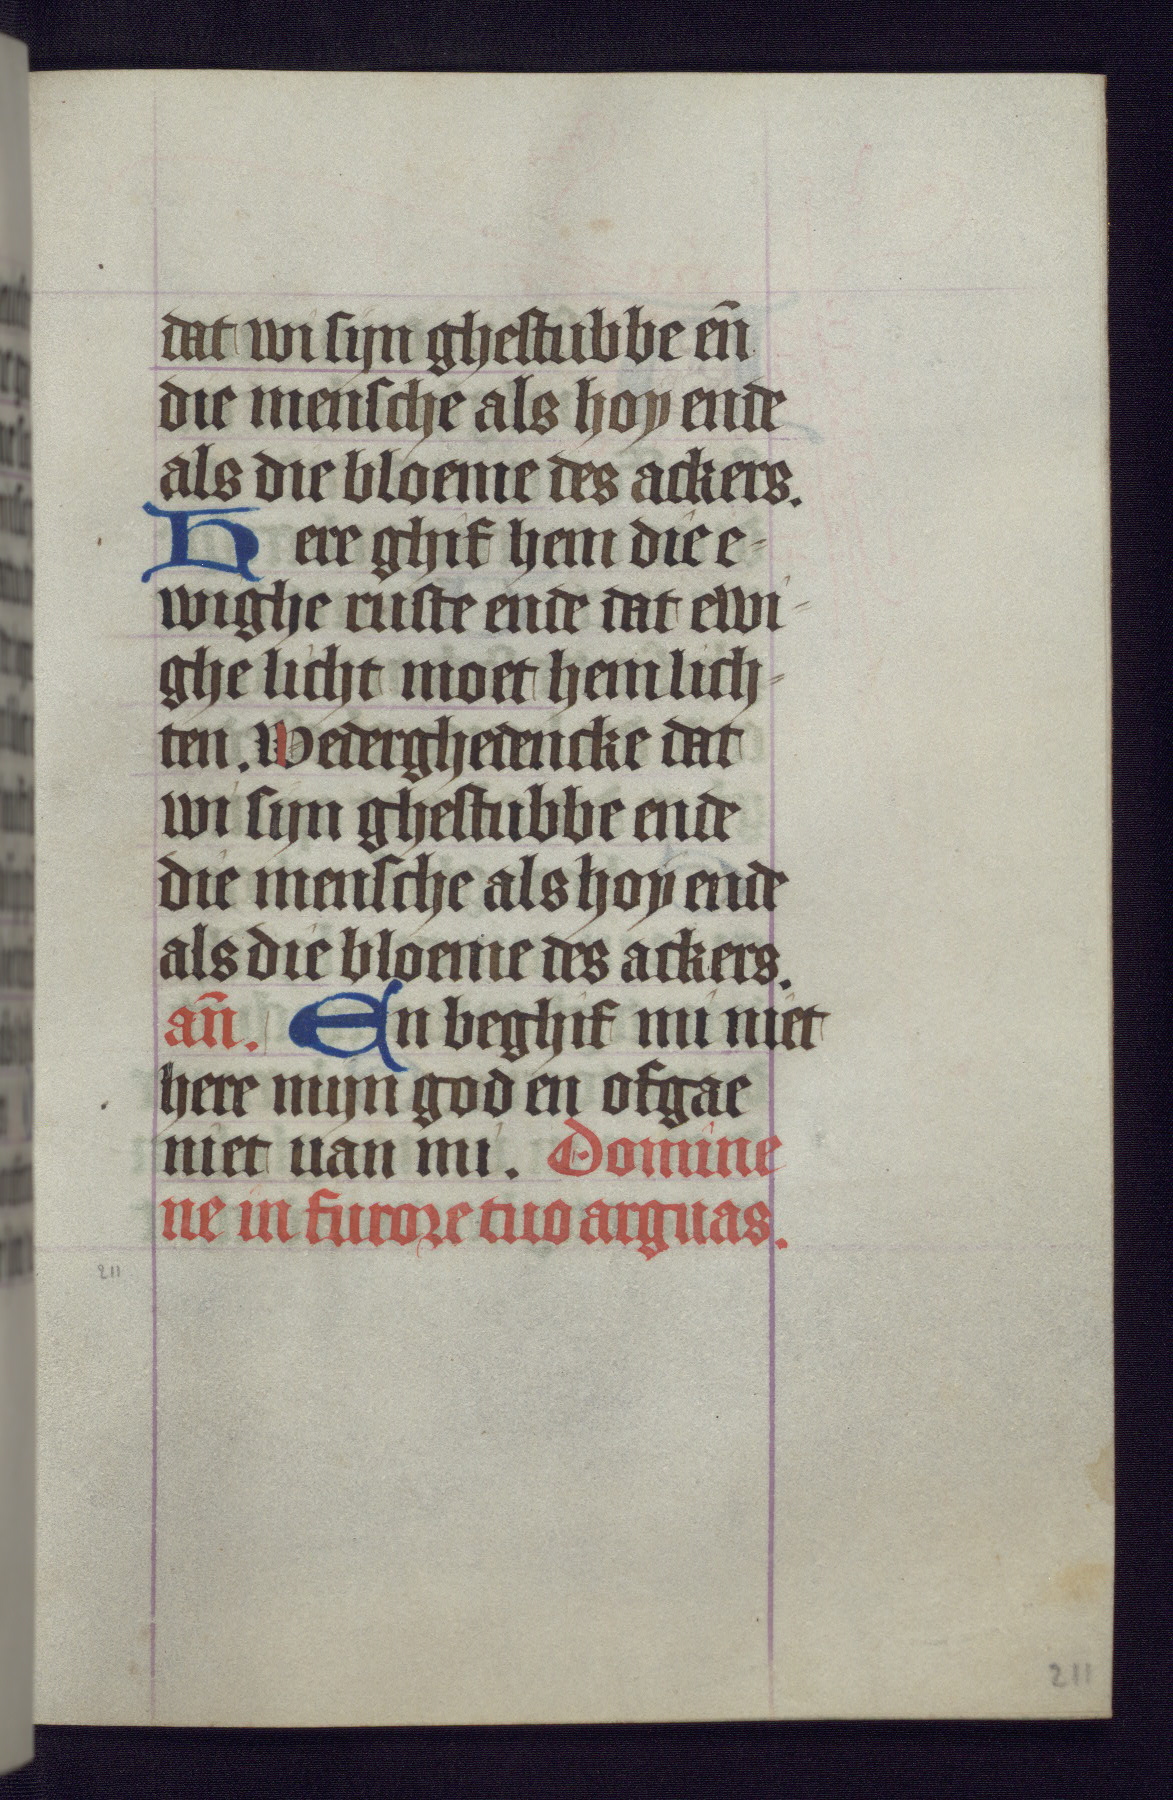 dat wi sijn ghestubbe en̄
die mensche als hoy ende
als die bloeme des ackers.
Here ghif hem die e-
wighe ruste ende dat ewi-
ghe licht moet hem lich-
ten. Wederghedencke dat
wi sijn ghestubbe ende
die mensche als hoy ende
als die bloeme des ackers.
an̄. En beghif mi niet
here mijn god en ofgae
niet uan mi. Domine
ne in furore tuo arguas.
211
211